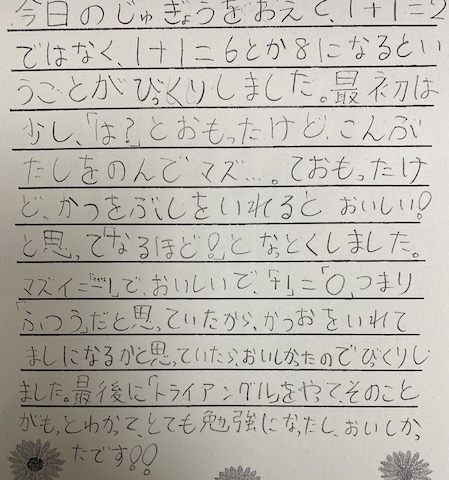 今日のじゅぎょうをおえて、1+1=2
ではなく、1+1=6とか8になるとい
うことがびっくりしました。最初は
少し、「は?」とおもったけど、こんぶ
だしをのんでマズ…。ておもったけ
ど、かつをぶしをいれるとおいしい!
と思って「なるほど!」となっとくしました。
マズイ=「マイナス一」で、おいしいで、「+1」=「0」つまり
「ふつう」だと思っていたから、かつおをいれて
ましになるかと思っていたら、おいしかったのでびっくりし
ました。最後に「トライアングル」をやって、そのこと
がもっとわかって、とても勉強になったし、おいしかっ
たです!!